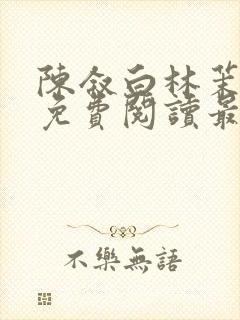 陳敘白林茉
免費閱讀最
不樂無語